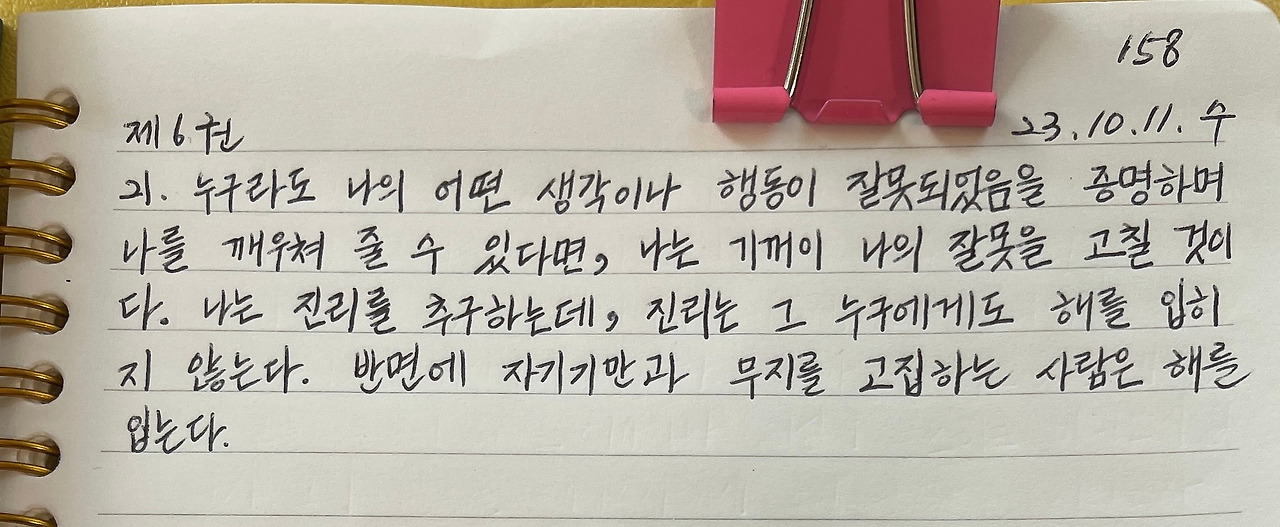 158
제6권 23.10.11. 수
21. 누구라도 나의 어떤 생각이나 행동이 잘못되었음을 증명하며
나를 깨우쳐 줄 수 있다면, 나는 기꺼이 나의 잘못을 고칠 것이
다. 나는 진리를 추구하는데, 진리는 그 누구에게도 해를 입히
지 않는다. 반면에 자기기만과 무지를 고집하는 사람은 해를
입는다.